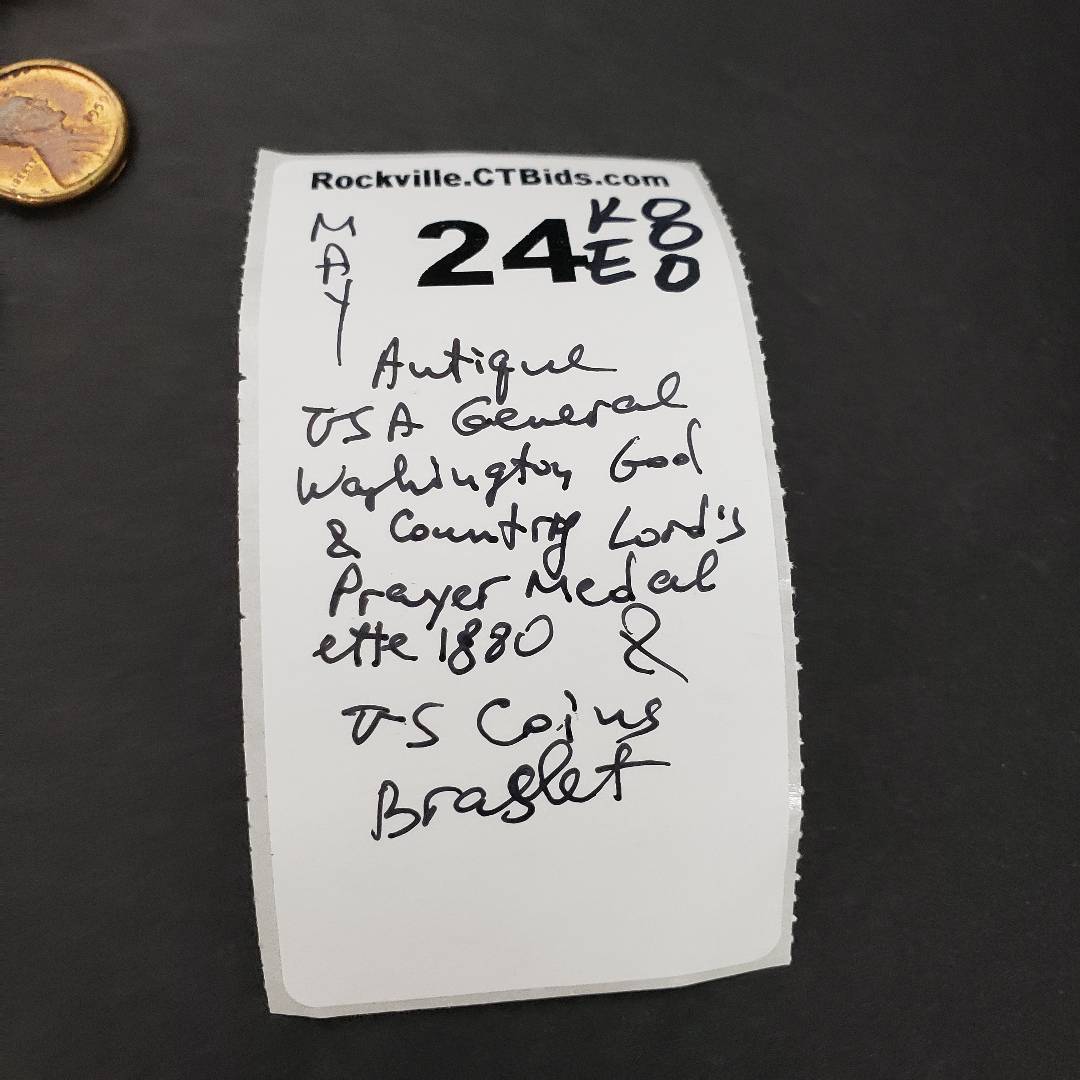 Rockville.CTBids.com
MAY
24
K8
E0
Antique
USA General
Washington God
& Country Lord's
Prayer Medal
ette 1880 &
US Coins
Braslet